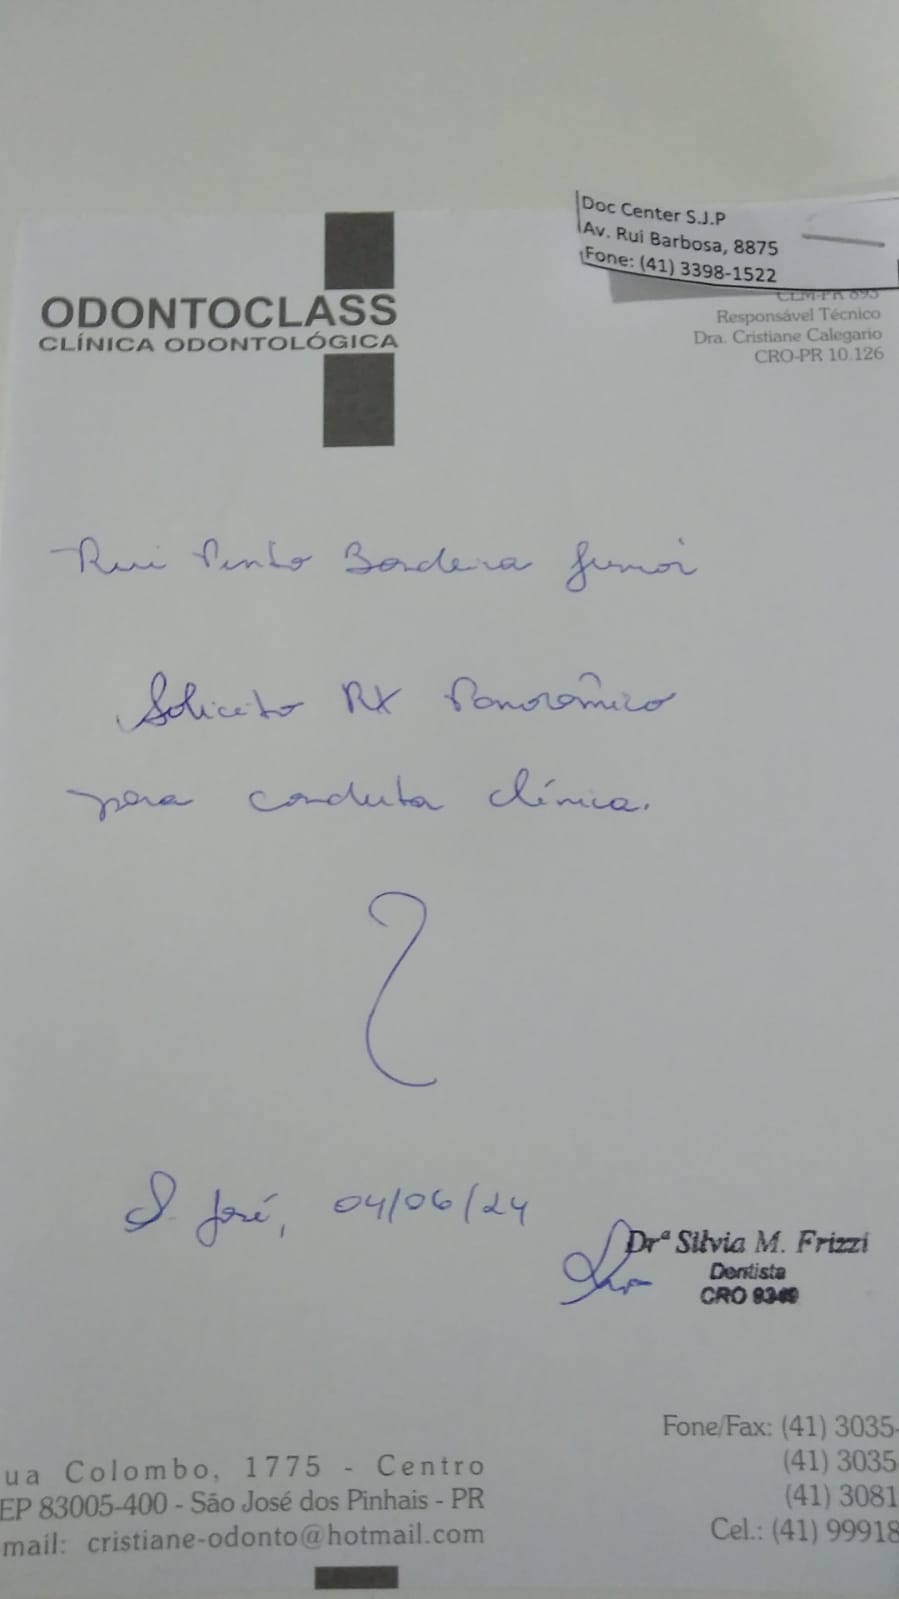 Doc Center S.J.P
Av. Rui Barbosa, 8875
Fone: (41) 3398-1522
ODONTOCLASS
CLÍNICA ODONTOLÓGICA
CLM-PR 893
Responsável Técnico
Dra. Cristiane Calegario
CRO-PR 10.126
Rui Pinto Bandeira Junior
Solicito RX Panorâmico
para conduta clínica.
S. José, 04/06/24
Drª Silvia M. Frizzi
Dentista
CRO 9349
ua Colombo, 1775 - Centro
EP 83005-400 - São José dos Pinhais - PR
mail: cristiane-odonto@hotmail.com
Fone/Fax: (41) 3035-
(41) 3035
(41) 3081
Cel.: (41) 99918